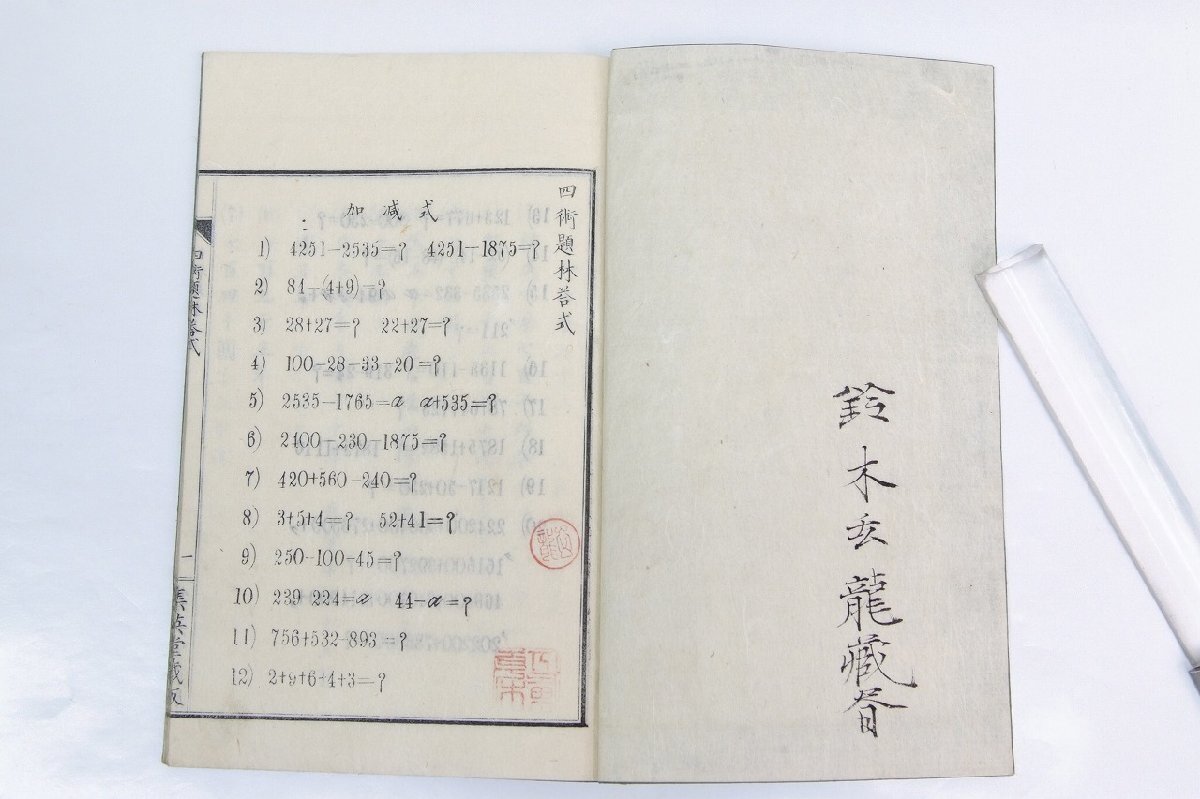 鈴木玄龍藏書
四術題林荅式
加減式
1) 4251-2535=? 4251-1875=?
2) 84-(4+9)=?
3) 28+27=? 22+27=?
4) 100-28-33-20=?
5) 2535-1765=a a+535=?
6) 2400-230-1875=?
7) 420+560-240=?
8) 3+5+4=? 52+41=?
9) 250-100-45=?
10) 239-224=a 44-a=?
11) 756+532-893=?
12) 2+9+6+4+3=?
四術題林荅式
一
集英堂藏版